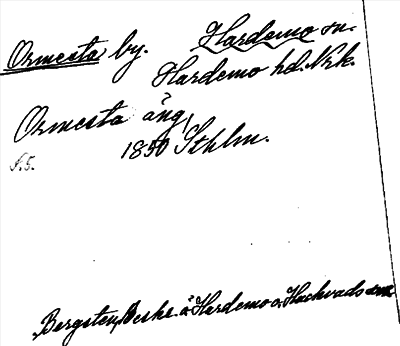 Ormesta by. Hardemo sn.
Hardemo hd. Nrk.
Ormesta äng,
1850 Sthlm.
s. 5.
Bergsten, Beskr. ö. Hardemo o. Hackvads snr